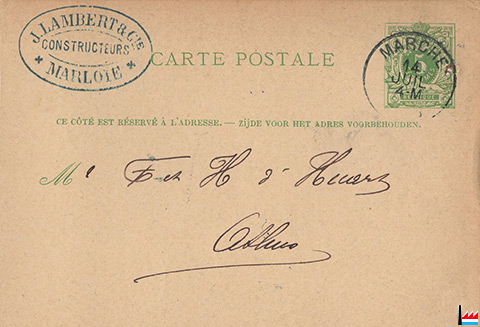 J. LAMBERT & CIE
CONSTRUCTEURS
* MARLOIE *
CARTE POSTALE
MARCHE
14
JUIL
4-M
BELGIQUE
CE CÔTÉ EST RÉSERVÉ À L'ADRESSE. — ZIJDE VOOR HET ADRES VOORBEHOUDEN.
M F et H d'Huart
Athus